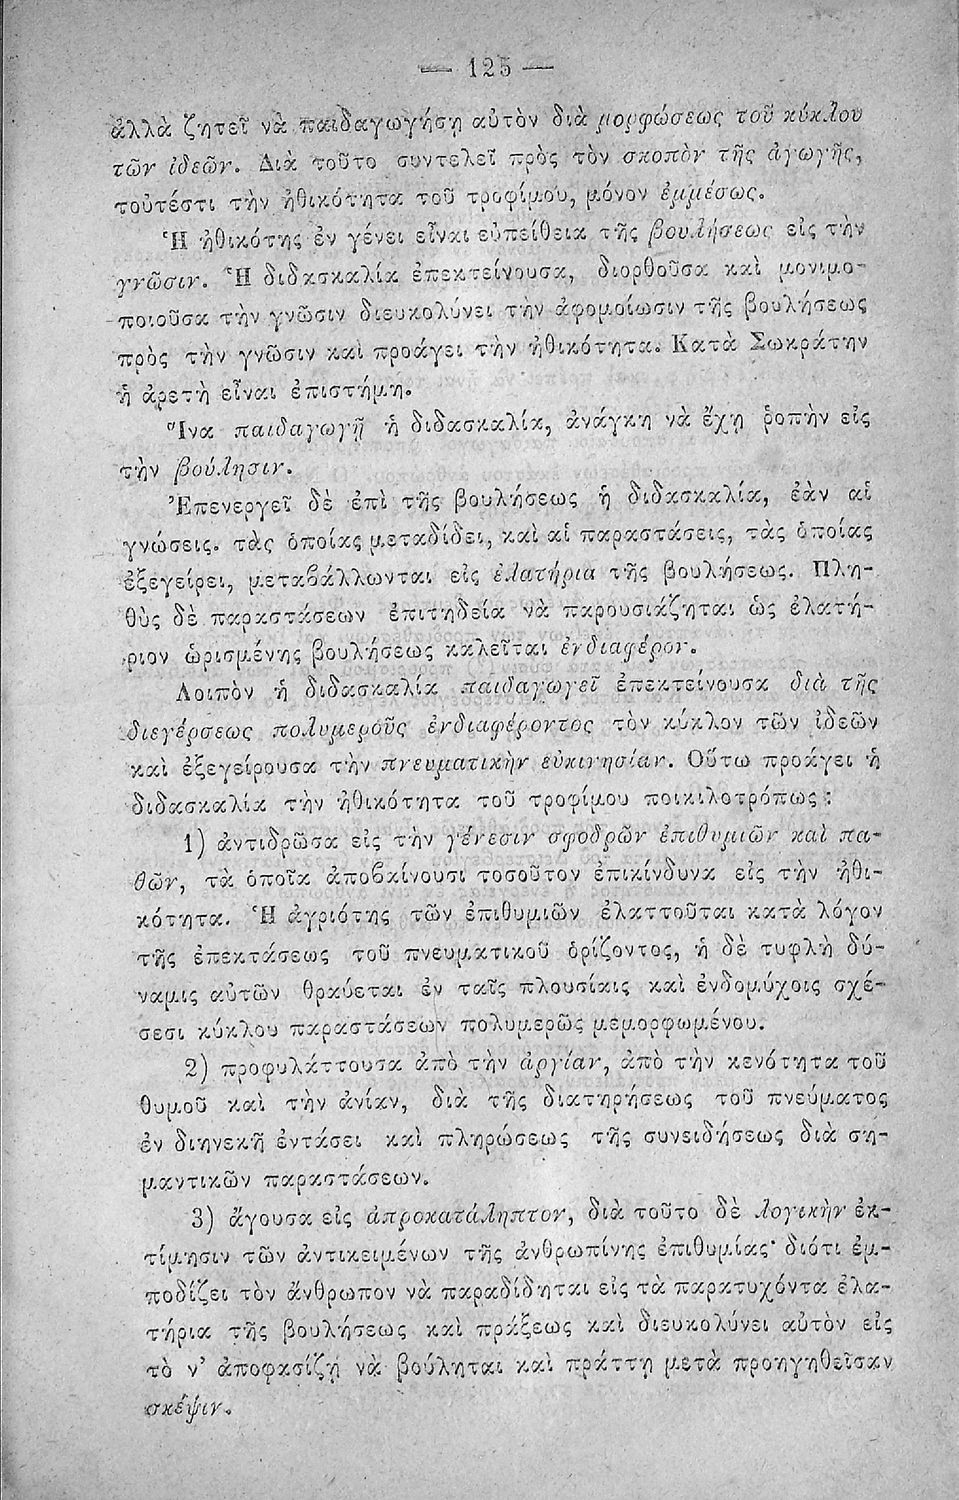 — 125 —
ἀλλὰ ζητεῖ νὰ παιδαγωγήσῃ αὐτὸν διὰ μορφώσεως τοῦ κύκλου
τῶν ἰδεῶν. Διὰ τοῦτο συντελεῖ πρὸς τὸν σκοπὸν τῆς ἀγωγῆς,
τοὐτέστι τὴν ἠθικότητα τοῦ τροφίμου, μόνον ἐμμέσως.
Ἡ ἠθικότης ἐν γένει εἶναι εὐπείθεια τῆς βουλήσεως εἰς τὴν
γνῶσιν. Ἡ διδασκαλία ἐπεκτείνουσα, διορθοῦσα καὶ μονιμο-
ποιοῦσα τὴν γνῶσιν διευκολύνει τὴν ἀφομοίωσιν τῆς βουλήσεως
πρὸς τὴν γνῶσιν καὶ προάγει τὴν ἠθικότητα. Κατὰ Σωκράτην
ἡ ἀρετὴ εἶναι ἐπιστήμη.
Ἵνα παιδαγωγῇ ἡ διδασκαλία, ἀνάγκη νὰ ἔχῃ ῥοπὴν εἰς
τὴν βούλησιν.
Ἐπενεργεῖ δὲ ἐπὶ τῆς βουλήσεως ἡ διδασκαλία, ἐὰν αἱ
γνώσεις. τὰς ὁποίας μεταδίδει, καὶ αἱ παραστάσεις, τὰς ὁποίας
ἐξεγείρει, μεταβάλλωνται εἰς ἐλατήρια τῆς βουλήσεως. Πλη-
θὺς δὲ παραστάσεων ἐπιτηδεία νὰ παρουσιάζηται ὡς ἐλατή-
ριον ὡρισμένης βουλήσεως καλεῖται ἐνδιαφέρον.
Λοιπὸν ἡ διδασκαλία παιδαγωγεῖ ἐπεκτείνουσα διὰ τῆς
διεγέρσεως πολυμεροῦς ἐνδιαφέροντος τὸν κύκλον τῶν ἰδεῶν
καὶ ἐξεγείρουσα τὴν πνευματικὴν εὐκινησίαν. Οὕτω προάγει ἡ
διδασκαλία τὴν ἠθικότητα τοῦ τροφίμου ποικιλοτρόπως :
1) ἀντιδρῶσα εἰς τὴν γένεσιν σφοδρῶν ἐπιθυμιῶν καὶ πα-
θῶν, τὰ ὁποῖα ἀποβαίνουσι τοσοῦτον ἐπικίνδυνα εἰς τὴν ἠθι-
κότητα. Ἡ ἀγριότης τῶν ἐπιθυμιῶν ἐλαττοῦται κατὰ λόγον
τῆς ἐπεκτάσεως τοῦ πνευματικοῦ ὁρίζοντος, ἡ δὲ τυφλὴ δύ-
ναμις αὐτῶν θραύεται ἐν ταῖς πλουσίαις καὶ ἐνδομύχοις σχέ-
σεσι κύκλου παραστάσεων πολυμερῶς μεμορφωμένου.
2) προφυλάττουσα ἀπὸ τὴν ἀργίαν, ἀπὸ τὴν κενότητα τοῦ
θυμοῦ καὶ τὴν ἀνίαν, διὰ τῆς διατηρήσεως τοῦ πνεύματος
ἐν διηνεκῆ ἐντάσει καὶ πληρώσεως τῆς συνειδήσεως διὰ ση-
μαντικῶν παραστάσεων.
3) ἄγουσα εἰς ἀπροκατάληπτον, διὰ τοῦτο δὲ λογικὴν ἐκ-
τίμησιν τῶν ἀντικειμένων τῆς ἀνθρωπίνης ἐπιθυμίας· διότι ἐμ-
ποδίζει τὸν ἄνθρωπον νὰ παραδίδηται εἰς τὰ παρατυχόντα ἐλα-
τήρια τῆς βουλήσεως καὶ πράξεως καὶ διευκολύνει αὐτὸν εἰς
τὸ ν' ἀποφασίζῃ νὰ βούληται καὶ πράττῃ μετὰ προηγηθεῖσαν
σκέψιν.